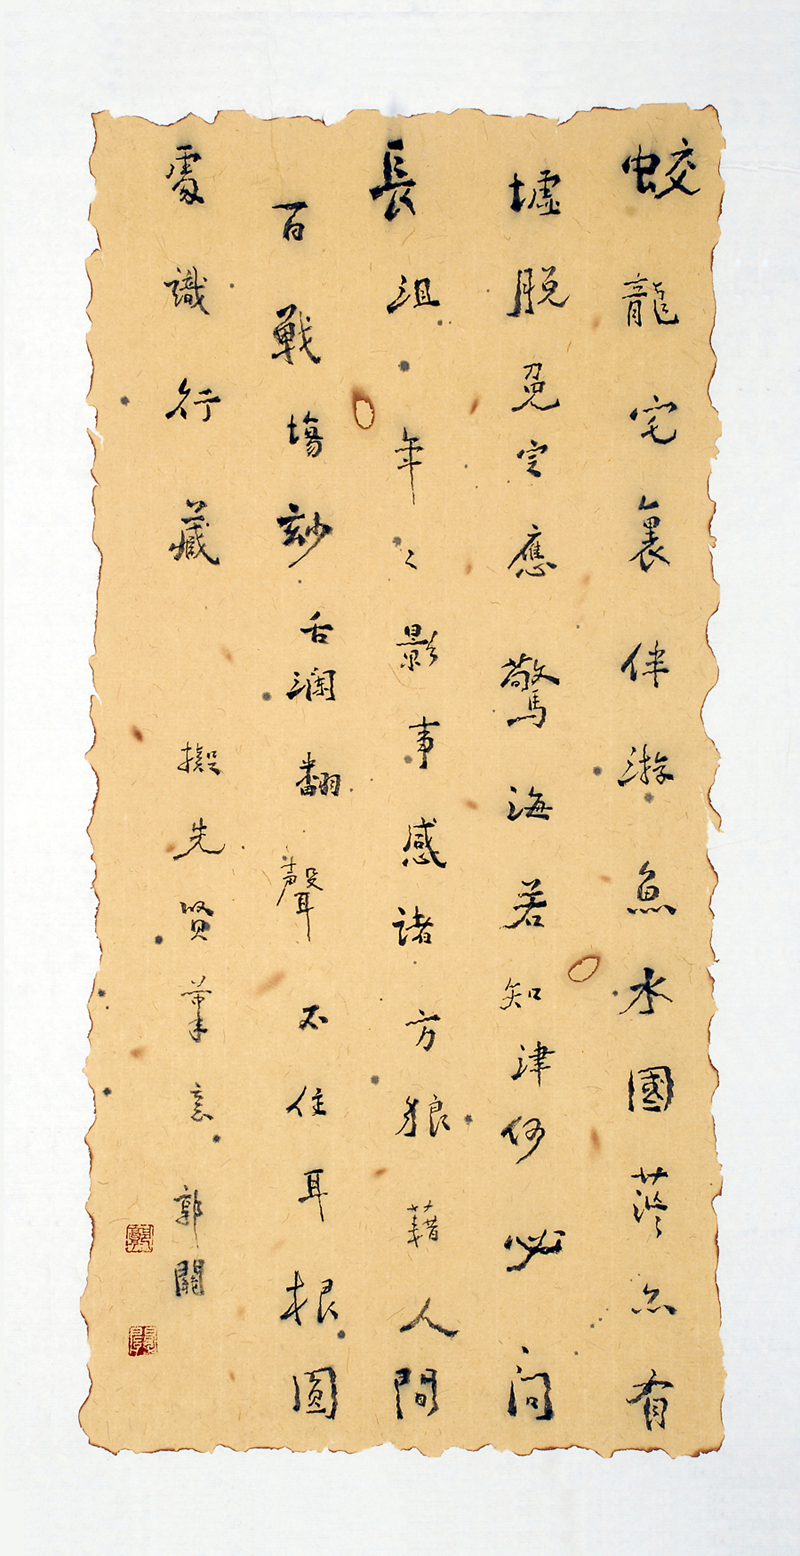 蛟龍宅裏伴游魚水國茫〻亦有
墟脫免定應驚海若知津何必問
長沮年〻影事感諸方狼藉人間
百戰場妙舌瀾翻聲不住耳根圓
處識行藏 擬先賢筆意 郭關